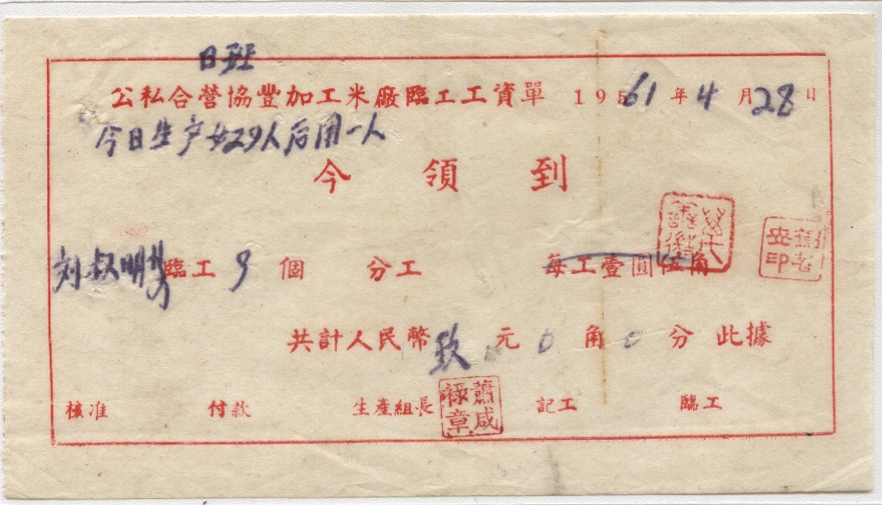 日班
公私合營協豐加工米廠臨工工資單 1961年4月28日
今日生产女29人后用一人
今領到
刘叔明 臨工 9 個 分工 每工壹圓伍角
共計人民幣玖元0角0分此據
核准 付款 生產組長 蕭咸祿章 記工 臨工